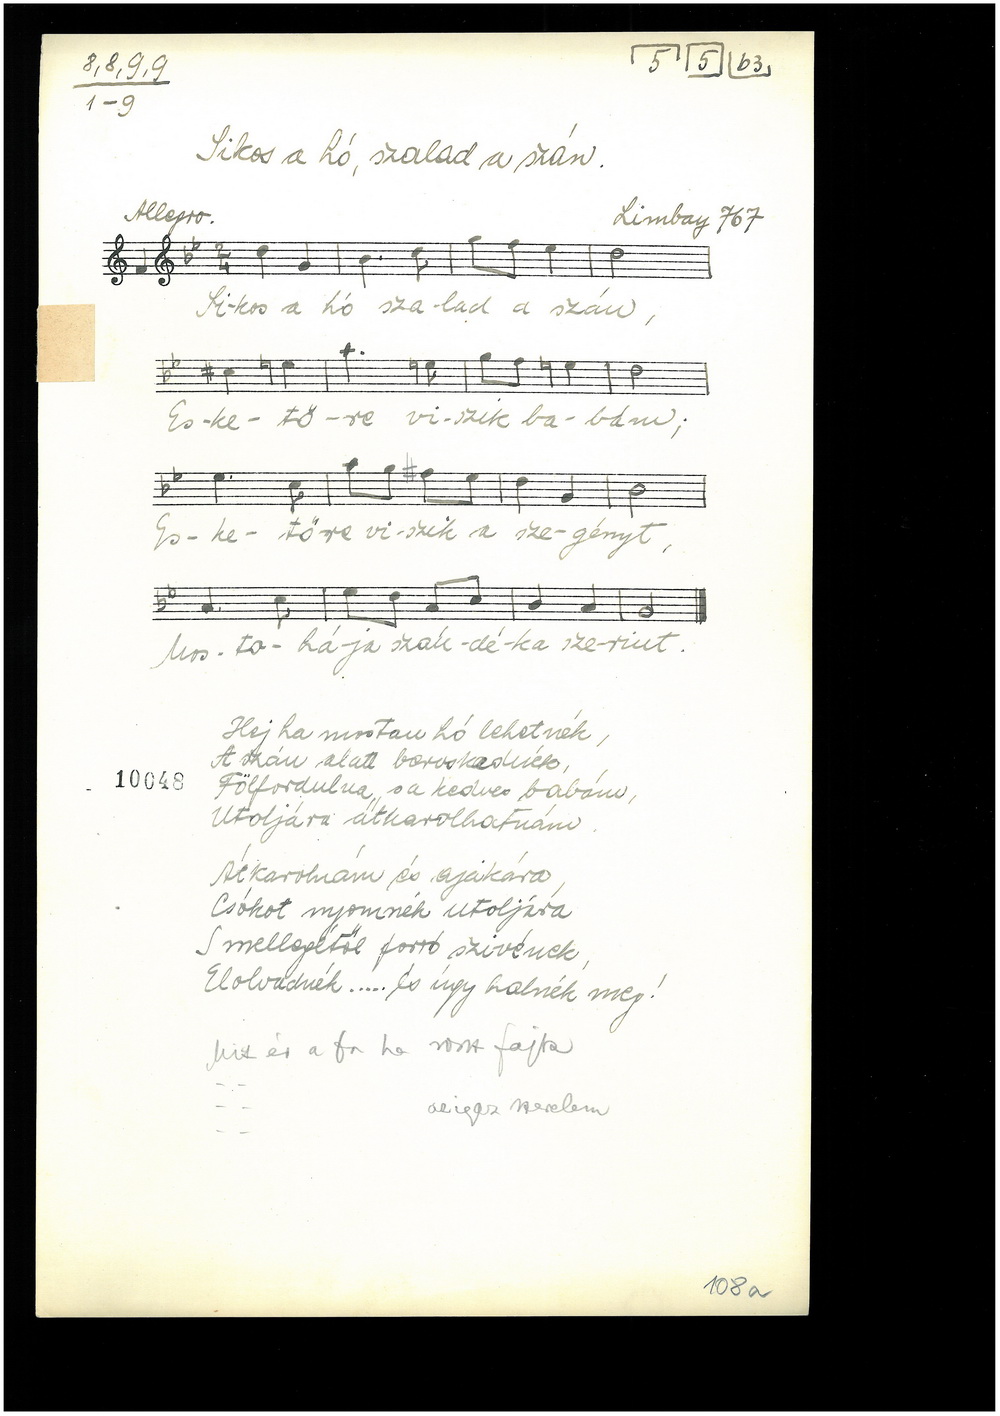 8,8,9,9
1-9
5 5 b3
Sikos a hó, szalad a szán.
Allegro.
Limbay 767
Si-kos a hó sza-lad a szán,
Es-ke-tő-re vi-szik ba-bám;
Es-ke-tőre vi-szik a sze-gényt,
Mos-to-há-ja szán-dé-ka sze-rint.
Hej ha mostan hó lehetnék,
A szán alatt beroskadnék,
Fölfordulna, s a kedves babám,
Utoljára átkarolhatnám.
10048
Átkarolnám és ajakára,
Csókot nyomnék utoljára
S mellegétől forró szivének,
Elolvadnék..... És úgy halnék meg!
Mit ér a fa ha rossz fajta
az igaz szerelem
108a